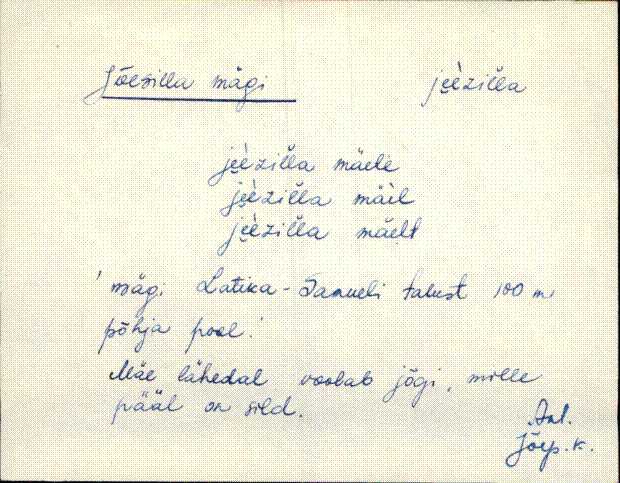 Jõesilla mägi jèèzilla
jèèzilla mäele
jèèzilla mäèl
jèèzilla mäelt
'mägi Latika-Saameli talust 100 m
põhja pool.'
Mäe lähedal voolab jõgi, mille
pääl on sild.
Jõep. k.